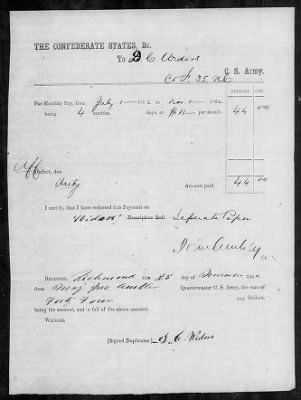 THE CONFEDERATE STATES, Dr.
To D C Widows
Co F. 35. NC C. S. Army.
DOLLARS. CTS.
For Monthly Pay, from July 1 1862, to Nov 1 1862
being 4 months, days, at $11 per month. 44 00
Deduct, due
Amount paid 44 00
I certify, that I have endorsed this Payment on
Descriptive Roll. Seperate Paper
RECEIVED, Richmond this 25 day of November 1862
from Maj Jno Ambler Quartermaster C. S. Army, the sum of
Forty Four Dollars,
being the amount, and in full of the above account.
WITNESS.
[Signed Duplicate.] D. C. Widows